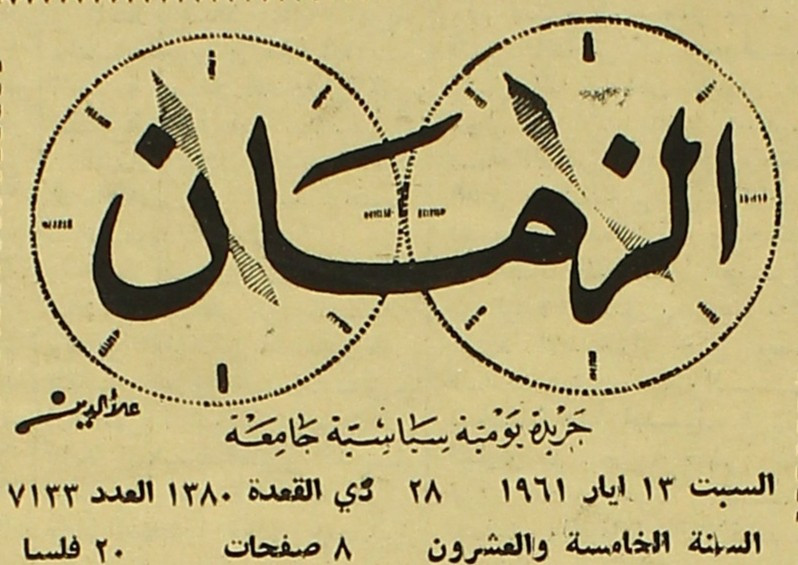 الزمان
علاء الدين
جَريدة يَوْميّة سِيَاسِيّة جَامِعَة
السبت ١٣ ايار ١٩٦١ ٢٨ ذي القعدة ١٣٨٠ العدد ٧١٣٣
السنة الخامسة والعشرون ٨ صفحات ٢٠ فلسا